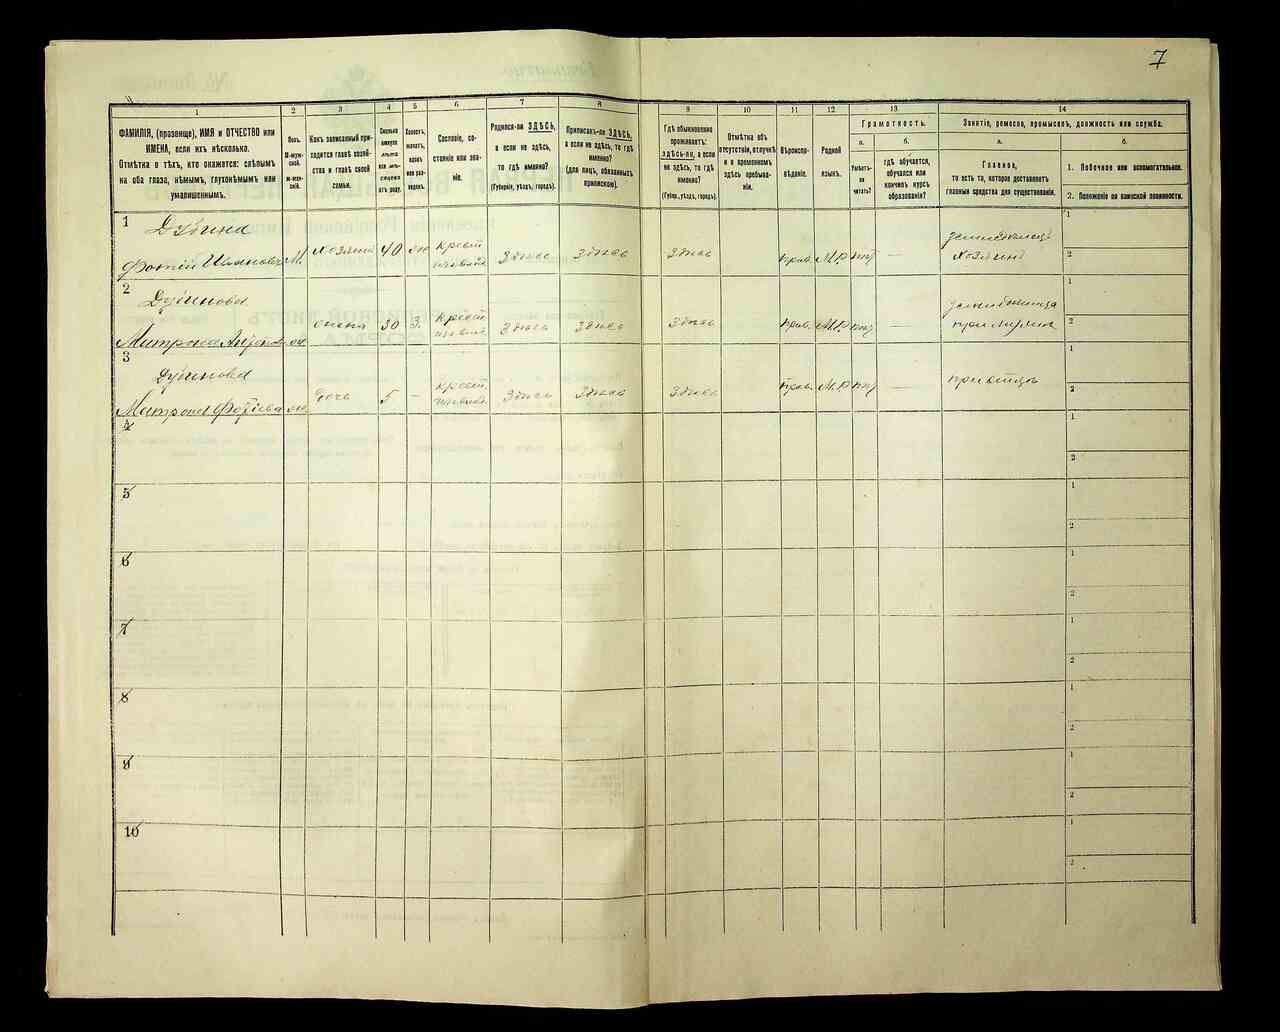 7
1
2
3
4
5
6
7
8
9
10
11
12
13
14
ФАМИЛІЯ, (прозвище), ИМЯ и ОТЧЕСТВО или
ИМЕНА, если ихъ нѣсколько.
Отмѣтка о тѣхъ, кто окажется: слѣпымъ
на оба глаза, нѣмымъ, глухонѣмымъ или
умалишеннымъ.
Полъ.
М-муж-
ской.
ж-жен-
скій.
Какъ записанный при-
ходится главѣ хозяй-
ства и главѣ своей
семьи.
Сколько
минуло
лѣтъ
или мѣ-
сяцевъ
отъ роду.
Холостъ,
женатъ,
вдовъ
или раз-
веденъ.
Сословіе, со-
стояніе или зва-
ніе.
Родился-ли ЗДѢСЬ,
а если не здѣсь,
то гдѣ именно?
(Губернія, уѣздъ, городъ).
Приписанъ-ли ЗДѢСЬ,
а если не здѣсь, то гдѣ
именно?
(для лицъ, обязанныхъ
припискою).
Гдѣ обыкновенно
проживаетъ:
здѣсь-ли, а если
не здѣсь, то гдѣ
именно?
(Губер., уѣздъ, городъ).
Отмѣтка объ
отсутствіи, отлучкѣ
и о временномъ
здѣсь пребыва-
ніи.
Вѣроиспо-
вѣданіе.
Родной
языкъ.
Грамотность.
а.
Умѣетъ-
ли
читать?
б.
гдѣ обучается,
обучался или
кончилъ курсъ
образованія?
Занятіе, ремесло, промыселъ, должность или служба.
а.
Главное,
то есть то, которое доставляетъ
главныя средства для существованія.
б.
1. Побочное или вспомогательное.
2. Положеніе по воинской повинности.
1
Дубина
Фотій Ивановъ М. хозяинъ 40 крест Здѣсь Здѣсь Здѣсь прав. М.Р. — хозяинъ
1
2
2
Дубинова
Матрона жена 30 З. крест Здѣсь Здѣсь Здѣсь прав. М.Р. —
1
2
3
Дубинова
Матрона Фотіева дочь 5 — крест. Здѣсь Здѣсь Здѣсь прав. М.Р. —
1
2
4
1
2
5
1
2
6
1
2
7
1
2
8
1
2
9
1
2
10
1
2